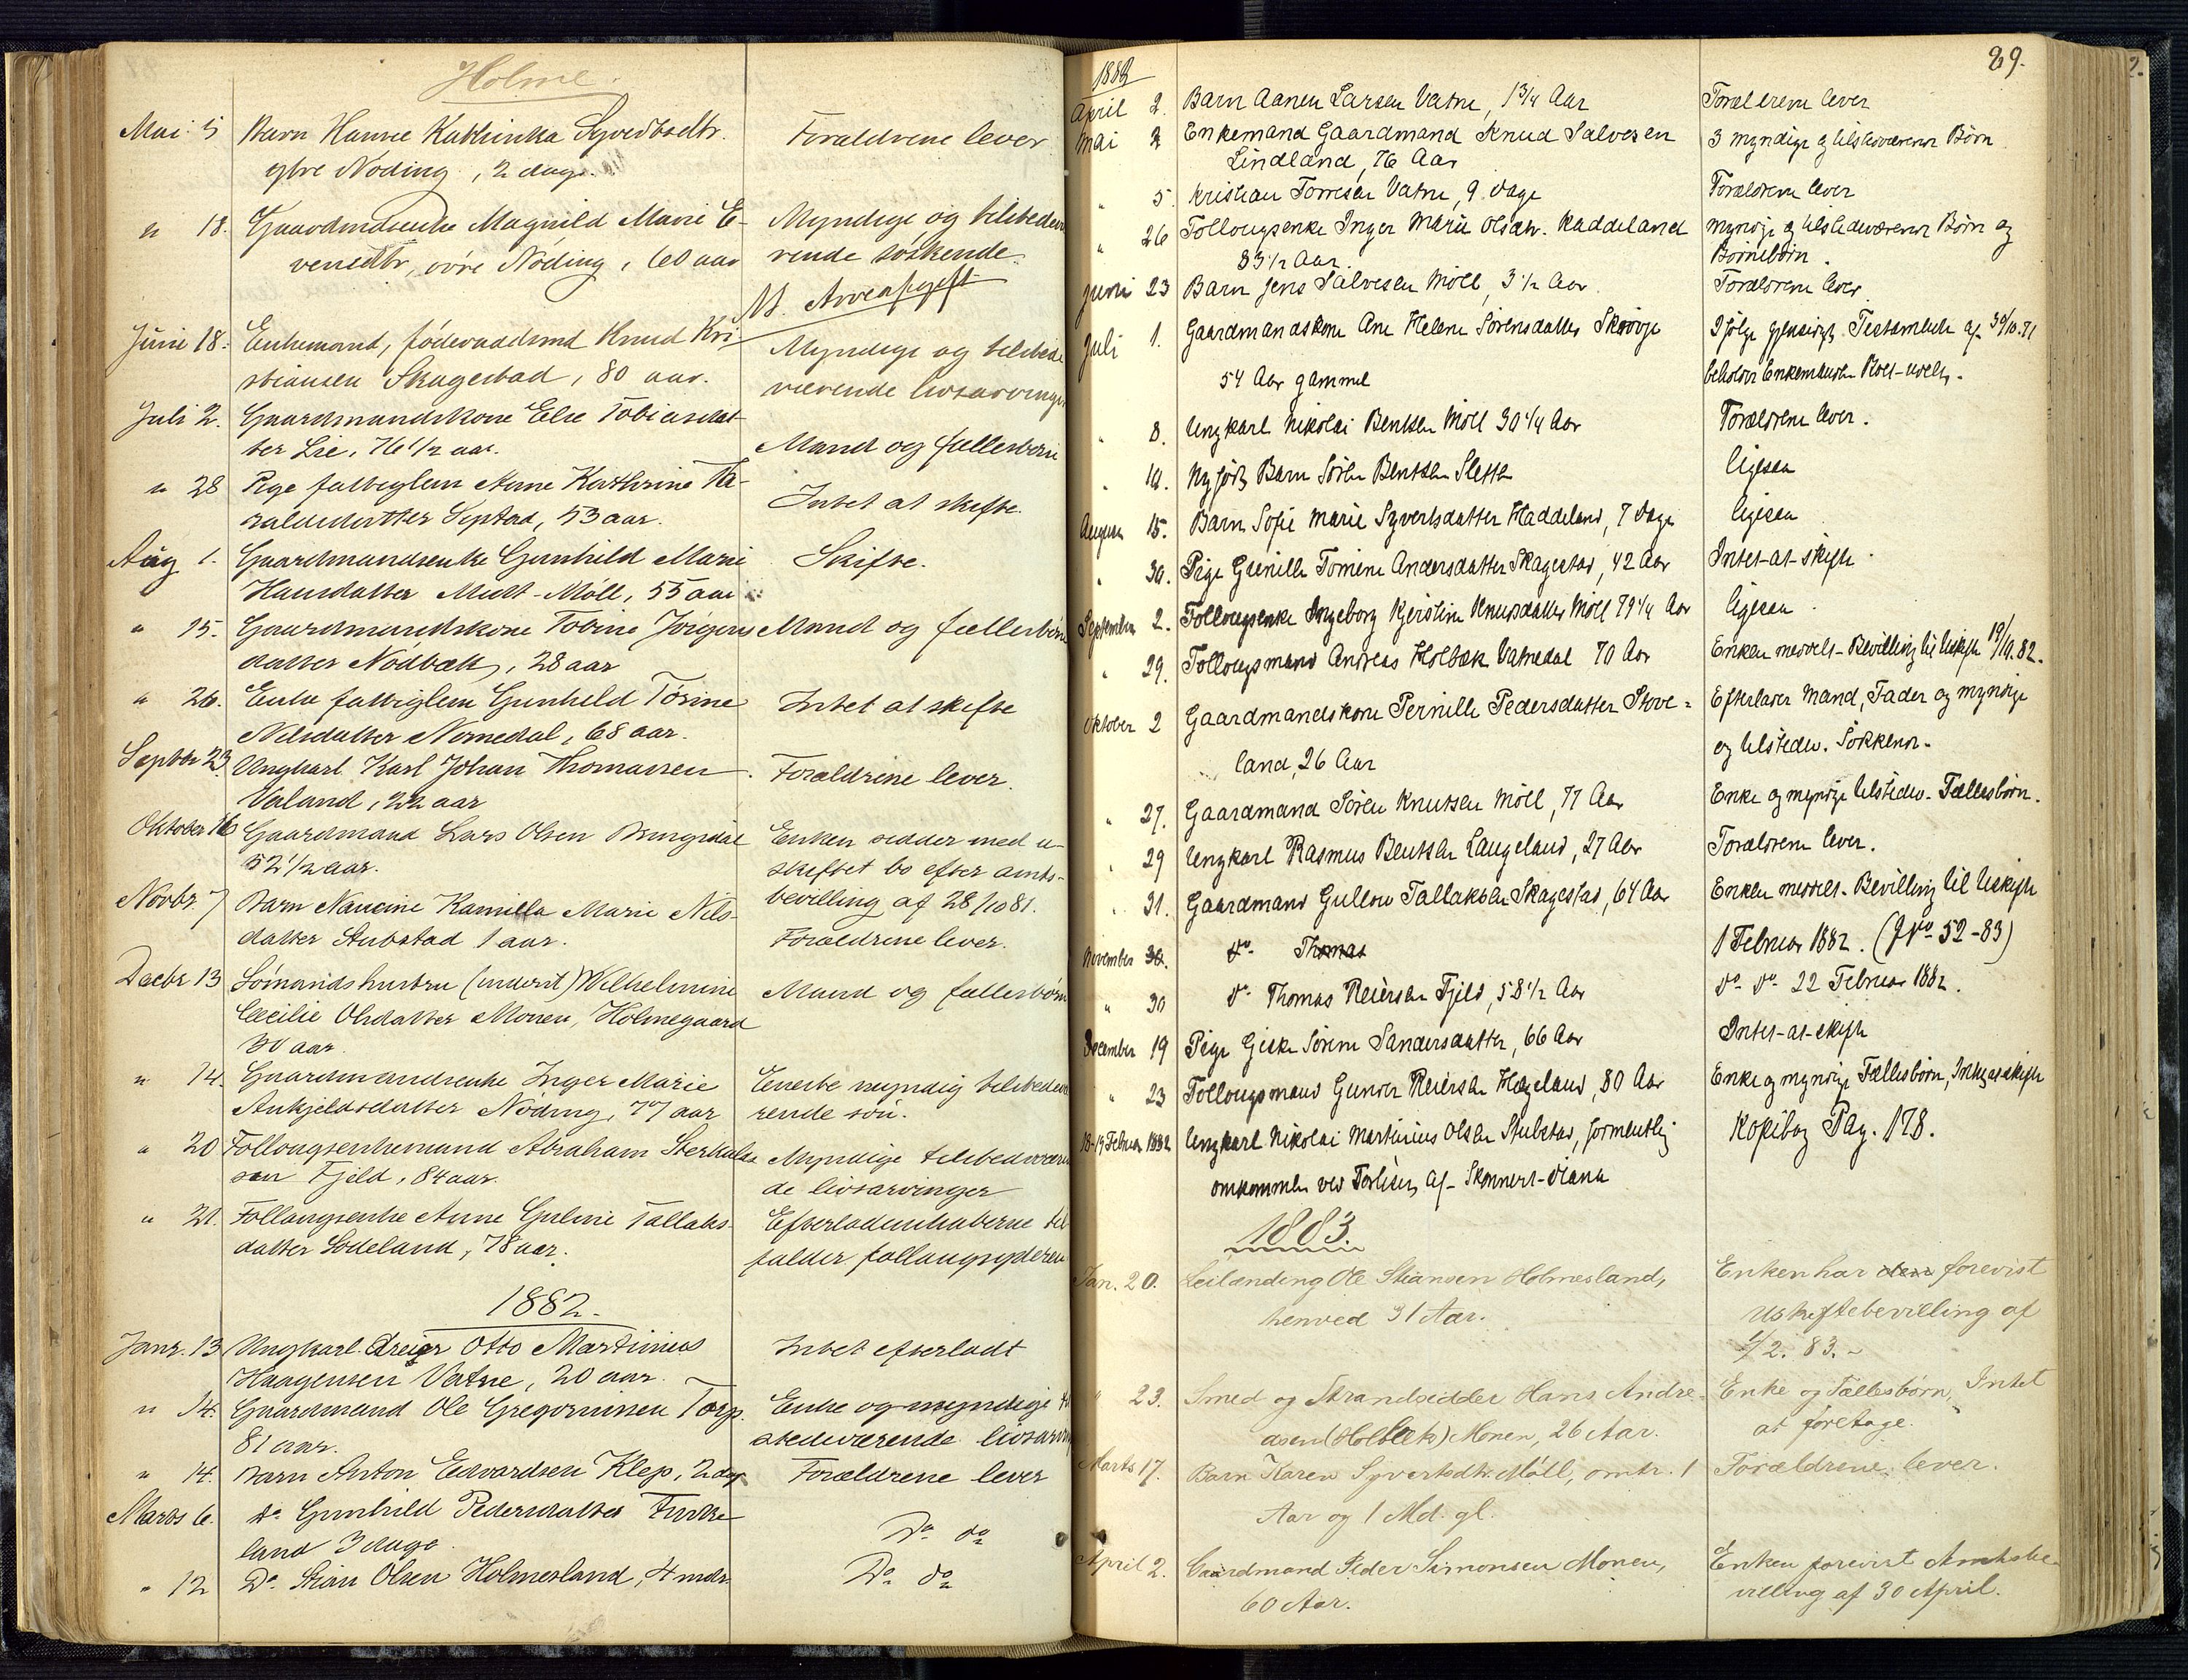 Holme.
Mai 5 Barn Hanne Kathinka Syvertsdtr. Forældrene lever
ytre Nöding, 2 dage.
" 18. Gaardmdsenke Magnild Marie E- Myndige og tilstedevæ
vensdtr, övre Nöding, 60 aar rende söskende.
NB. Arveafgift
Juni 18. Enkemand, föderaadsmd Knud Kri- Myndige og tilstede
stiansen Skagestad, 80 aar. værende livsarvinger
Juli 2. Gaardmandskone Else Tobiasdat
ter Lie, 76 1/2 aar. Mand og fællesbörn
" 28 Pige fattiglem Anne Kathrine Ta-
raldsdatter Septad, 53 aar. Intet at skifte
Aug 1. Gaardmandsenke Gunhild Marie Skifte.
Hansdatter Midt-Möll, 55 aar
" 15. Gaardmandskone Tobine Jörgens Mand og fællesbörn
datter Nödbæk, 28 aar
" 26. Enke fattiglem Gunhild Torine Intet at skifte
Nilsdatter Nomedal, 68 aar.
Septbr 23. Ungkarl Karl Johan Thomassen Forældrene lever.
Valand, 22 aar
Oktober 16 Gaardmand Lars Olsen Bringsdal Enken sidder med u-
52 1/2 aar. skiftet bo efter amts-
bevilling af 28/10 81.
Novbr. 7 Barn Nancine Kamilla Marie Nils-
datter Stubstad 1 aar. Forældrene lever.
Decbr 13 Sömandshustru (inderst) Wilhelmine Mand og fællesbörn
Cecilie Olsdatter Monen, Holmegaard
30 aar.
" 14. Gaardmandsenke Inger Marie Eneste myndig tilstedevæ
Ankjeldsdatter Nöding, 77 aar rende sön.
" 20 Follougsenkemand Abraham Sterkuls Myndige tilstedværen
sen Fjeld, 84 aar. de livsarvinger
" 21. Follaugsenke Anne Guline Tallaks- Efterladenskaberne til
datter Sodeland, 78 aar. falder follaugsyderen
1882.
Janr. 13 Ungkarl Dreier Otto Martinius Intet efterladt
Haagensen Vatne, 20 aar.
" 14. Gaardmand Ole Gregoriusen Torp. Enke og myndige til
81 aar. stedeværende livsarvin
" 14. Barn Anton Edvardsen Klep, 2 dage Forældrene lever
Marts 6. Do Gunhild Pedersdatter
land 3 dage Do do
" 12 Do. Stian Olsen Holmesland, 4 mdr. Do do
29.
1882
April 2. Barn Aanen Larsen Vatne, 1 3/4 Aar Forældrene lever
Mai 2 Enkemand Gaardmand Knud Salvesen 3 myndige og tilstedeværende Börn
Lindland, 76 Aar
" 5. Kristian Torresen Vatne, 9 Dage Forældrene lever
" 26 Follougsenke Inger Marie Olsdtr. Haddeland myndige og tilstedeværende Börn og
83 1/2 Aar. Börnebörn.
Juni 23 Barn Jens Salvesen Möll, 3 1/2 Aar. Forældrene lever.
Juli 1. Gaardmandskone Ane Helene Sörensdatter I fölge gjensidigt Testamente af 30/10.71
54 Aar gammel beholder Enkemanden Boet uskift.
" 8. Ungkarl Nikolai Bentsen Möll 30 1/4 Aar Forældrene lever.
" 10. Nyfödt Barn Sören Bentsen Slette ligesaa
August 15. Barn Sofie Marie Syvertsdatter Haddeland, 7 Dage ligesaa
" 30. Pige Gunille Tomine Andersdatter Skagestad, 42 Aar Intet at skifte.
September 2. Follougsenke Ingeborg Kjerstine Knudsdatter Möll 79 1/4 Aar ligesaa.
" 29. Follougsmand Andreas Holbæk Vatnedal 70 Aar Enken meddelt Bevilling til Uskifte 19/10.82.
Oktober 2 Gaardmandskone Pernille Pedersdatter Stove= Efterlader Mand, Fader og myndige
land, 26 Aar og tilstedev. Söskende.
" 27. Gaardmand Sören Knutsen Möll, 77 Aar Enke og myndige tilstedev. Fællesbörn.
" 29 Ungkarl Rasmus Bentsen Laugeland, 27 Aar Forældrene lever.
" 31. Gaardmand Gullow Tallaksen Skagestad, 64 Aar Enken meddelt Bevilling til Uskifte
November 30. do Thomas 1 Februar 1882. (Jno 52-83)
" 30 do Thomas Reiersen Fjeld, 58 1/2 Aar do do 22 Februar 1882.
December 19 Pige Giske Sörine Sandersdatter, 66 Aar Intet at skifte
" 23 Follougsmand Gunder Reiersen Hægeland, 80 Aar Enke og myndige Fællesbörn, Intet at skifte
18-19 Februar 1882 Ungkarl Nikolai Martinius Olsen Stubstad, formentlig Kopibog Pag. 178.
omkommen ved Forliset af Skonnert Diana
1883.
Jan. 20. Leilænding Ole Stiansen Holmesland, Enken har den forevist
henved 31 Aar. Uskiftebevilling af
1/2. 83.
" 23. Smed og Strandsidder Hans Andre- Enke og Fællesbörn, Intet
asen (Holbek) Monen, 26 Aar. at foretage.
Marts 17. Barn Karen Syvertsdtr. Möll, omtr. 1 Forældrene lever.
Aar og 1 Md. gl.
April 2. Gaardmand Peder Simonsen Monen, Enken forevist Amtsbe-
60 Aar. villing af 30 April.